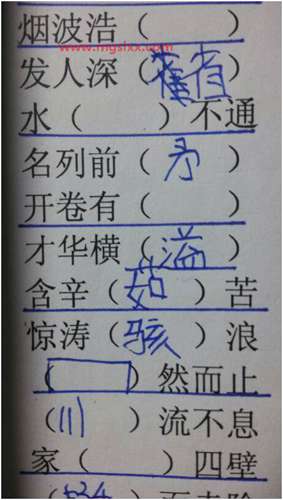 烟波浩（ ）
www.mgslxx.com
发人深（省）
水（ ）不通
名列前（矛）
开卷有（ ）
才华横（溢）
含辛（茹）苦
惊涛（骇）浪
（ ）然而止
（川）流不息
家（ ）四壁